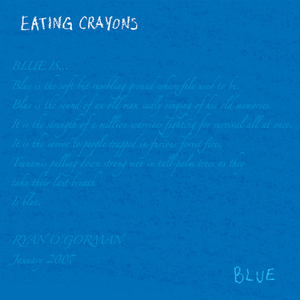 EATING CRAYONS
BLUE IS...
Blue is the soft but rumbling ground where life used to be.
Blue is the sound of an old man sadly singing of his old memories.
It is the strength of a million warriors fighting for survival all at once.
It is the savior to people trapped in furious forest fires,
Tsunamis pulling down strong men in tall palm trees as they
take their last breath.
Is blue.
RYAN O'GORMAN
January 2007
BLUE